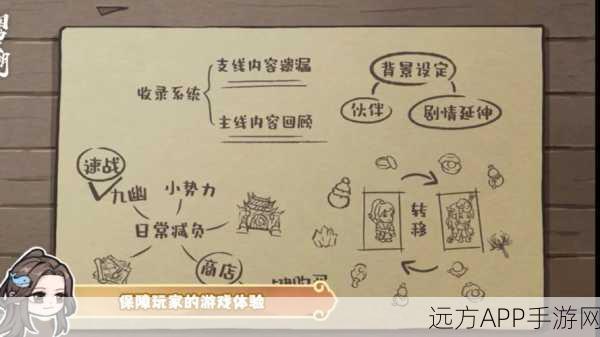 支线内容遗漏
收录系统
主线内容回顾
背景设定
伙伴
剧情延伸
速战
九幽
小势力
日常减负
商店
转移
保障玩家的游戏体验
远方APP手游网